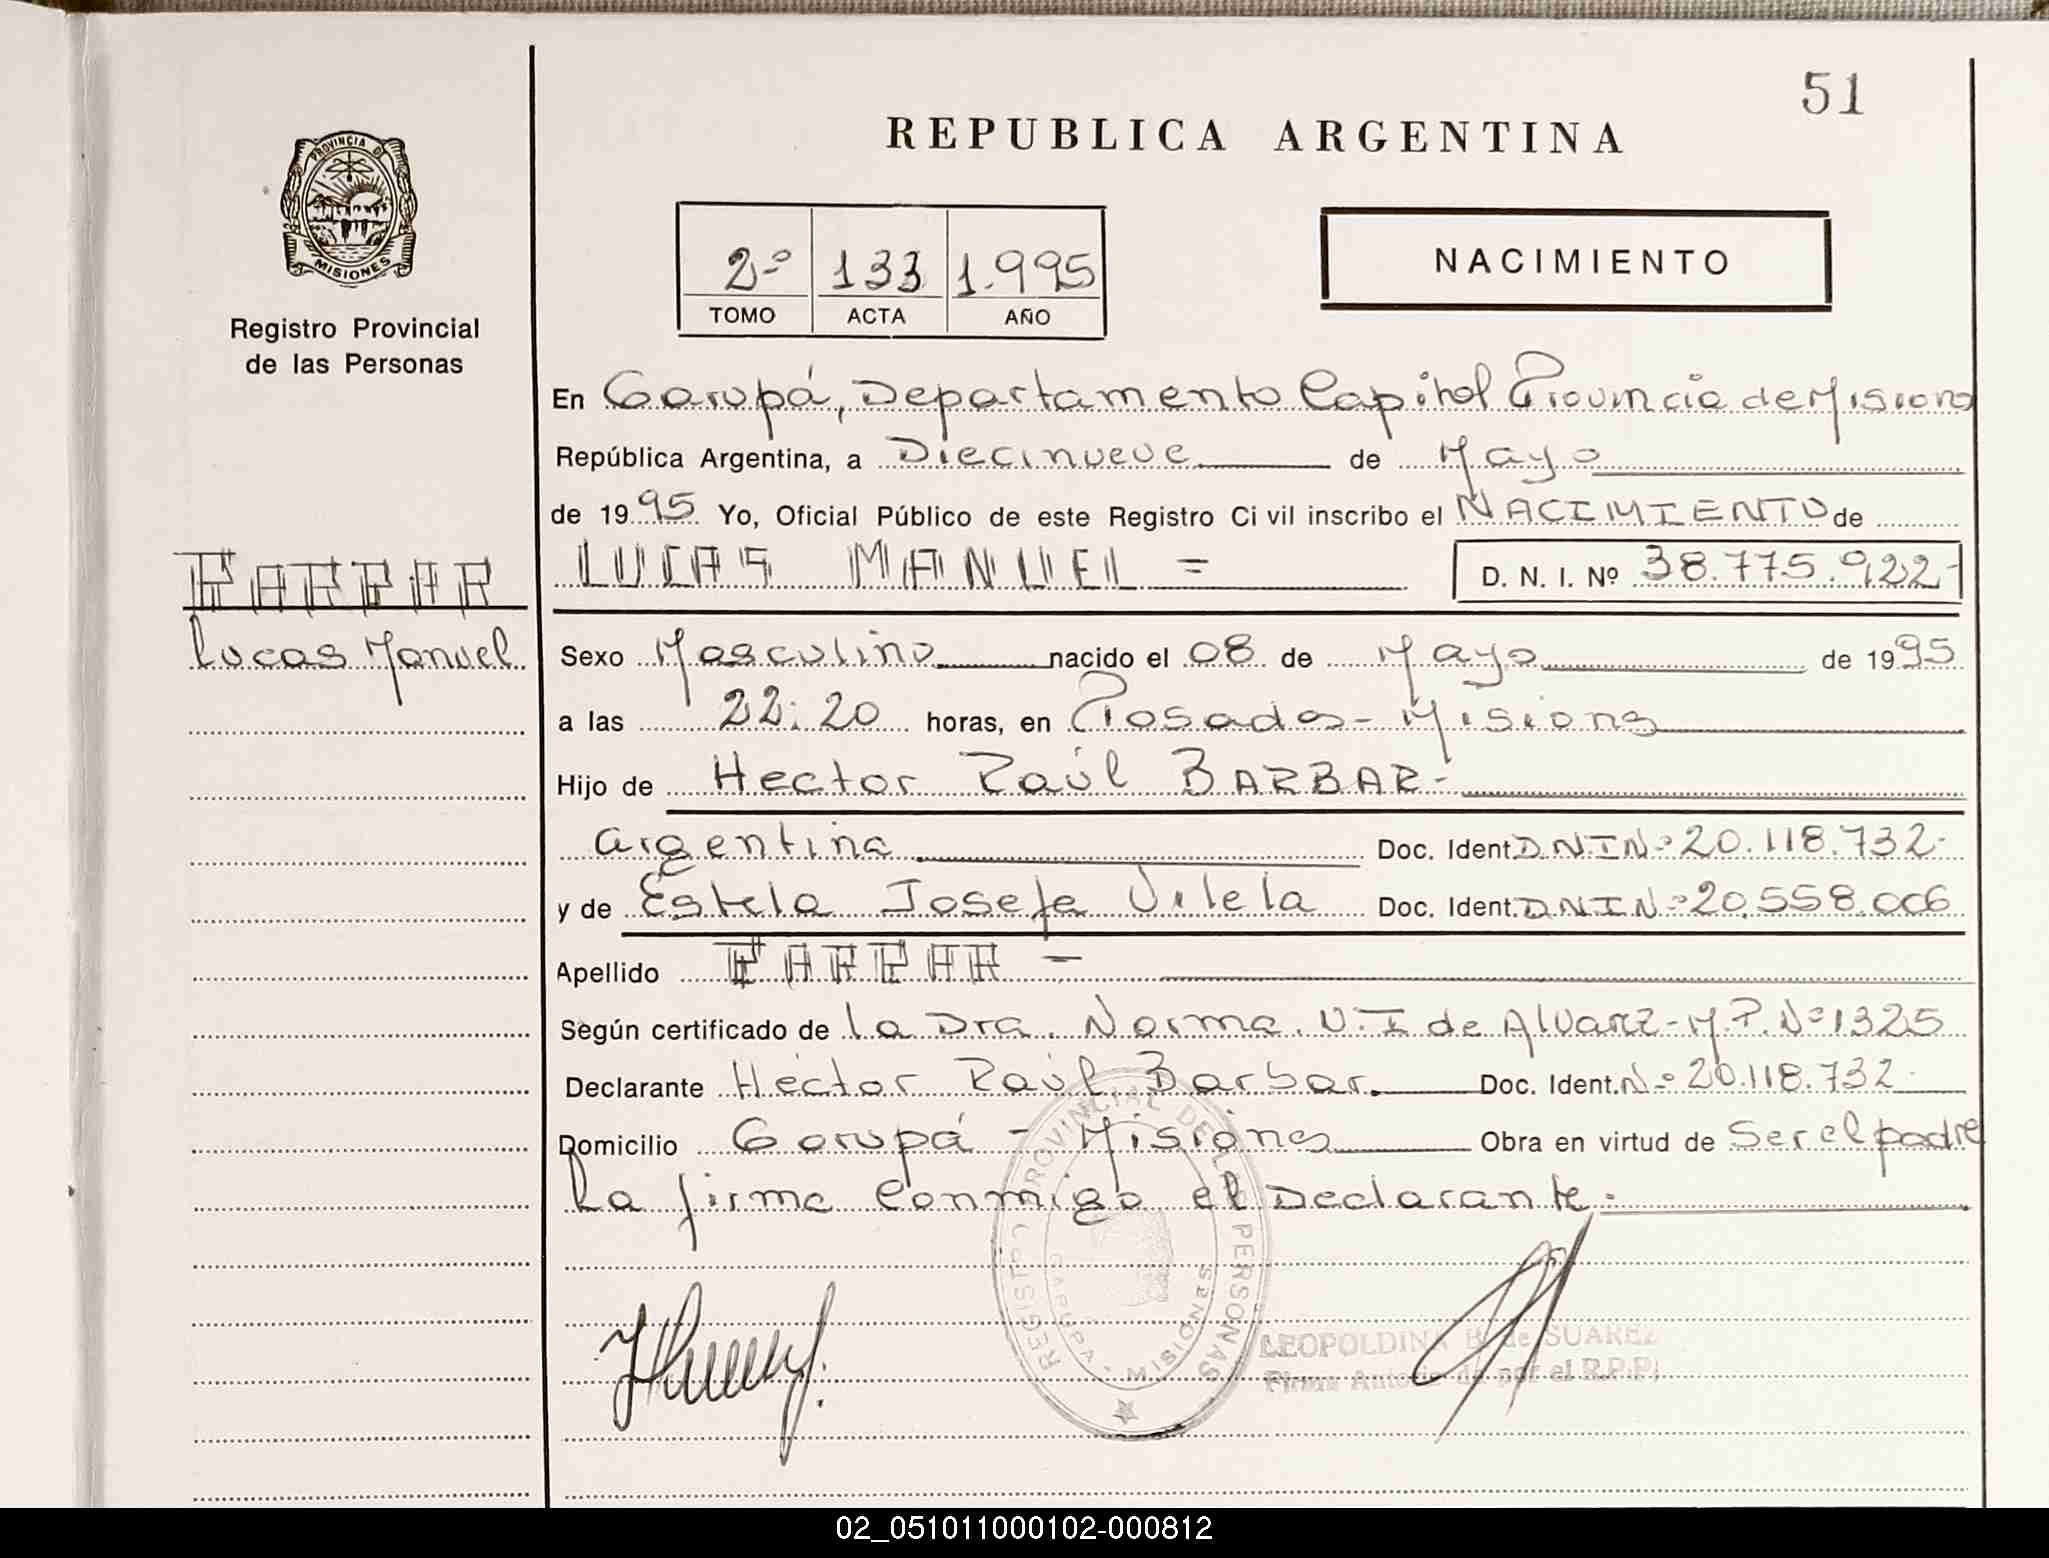 51
REPUBLICA ARGENTINA
PROVINCIA DE
MISIONES
Registro Provincial
de las Personas
2º 133 1.995
TOMO ACTA AÑO
NACIMIENTO
En Garupá, Departamento Capital Provincia de Misiones
República Argentina, a Diecinueve de Mayo
de 1995 Yo, Oficial Público de este Registro Civil inscribo el NACIMIENTO de
LUCAS MANUEL = D. N. I. Nº 38.775.922-
BARBAR
Lucas Manuel
Sexo Masculino nacido el 08 de Mayo de 1995
a las 22:20 horas, en Posadas - Misiones
Hijo de Hector Raúl BARBAR-
argentina Doc. Ident. DNI Nº 20.118.732-
y de Estela Josefa Vilela Doc. Ident. DNI Nº 20.558.006
Apellido BARBAR -
Según certificado de la Dra. Norma. V. I de Alvarez - M.P. Nº 1325
Declarante Héctor Raúl Barbar. Doc. Ident. Nº 20.118.732-
Domicilio Garupá - Misiones Obra en virtud de Ser el padre
La firma Conmigo el Declarante.
REGISTRO PROVINCIAL DE LAS PERSONAS
GARUPA - MISIONES
LEOPOLDINA B. de SUAREZ
Firma Autorizada por el R.P.P.
02_051011000102-000812